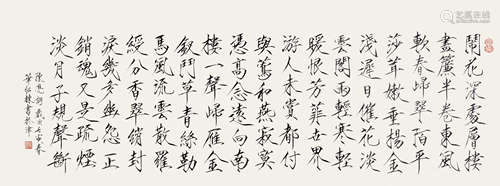 鬧花深處層樓
畫簾半卷東風
軟春歸翠陌平
莎茸嫩垂楊金
淺遲日催花淡
雲閣雨輕寒輕
暖恨芳菲世界
游人未賞都付
與鶯和燕寂寞
憑高念遠向南
樓一聲歸雁金
釵鬥草青絲勒
馬風流雲散羅
綬分香翠綃封
淚幾多幽怨正
銷魂又是疏煙
淡月子規聲斷